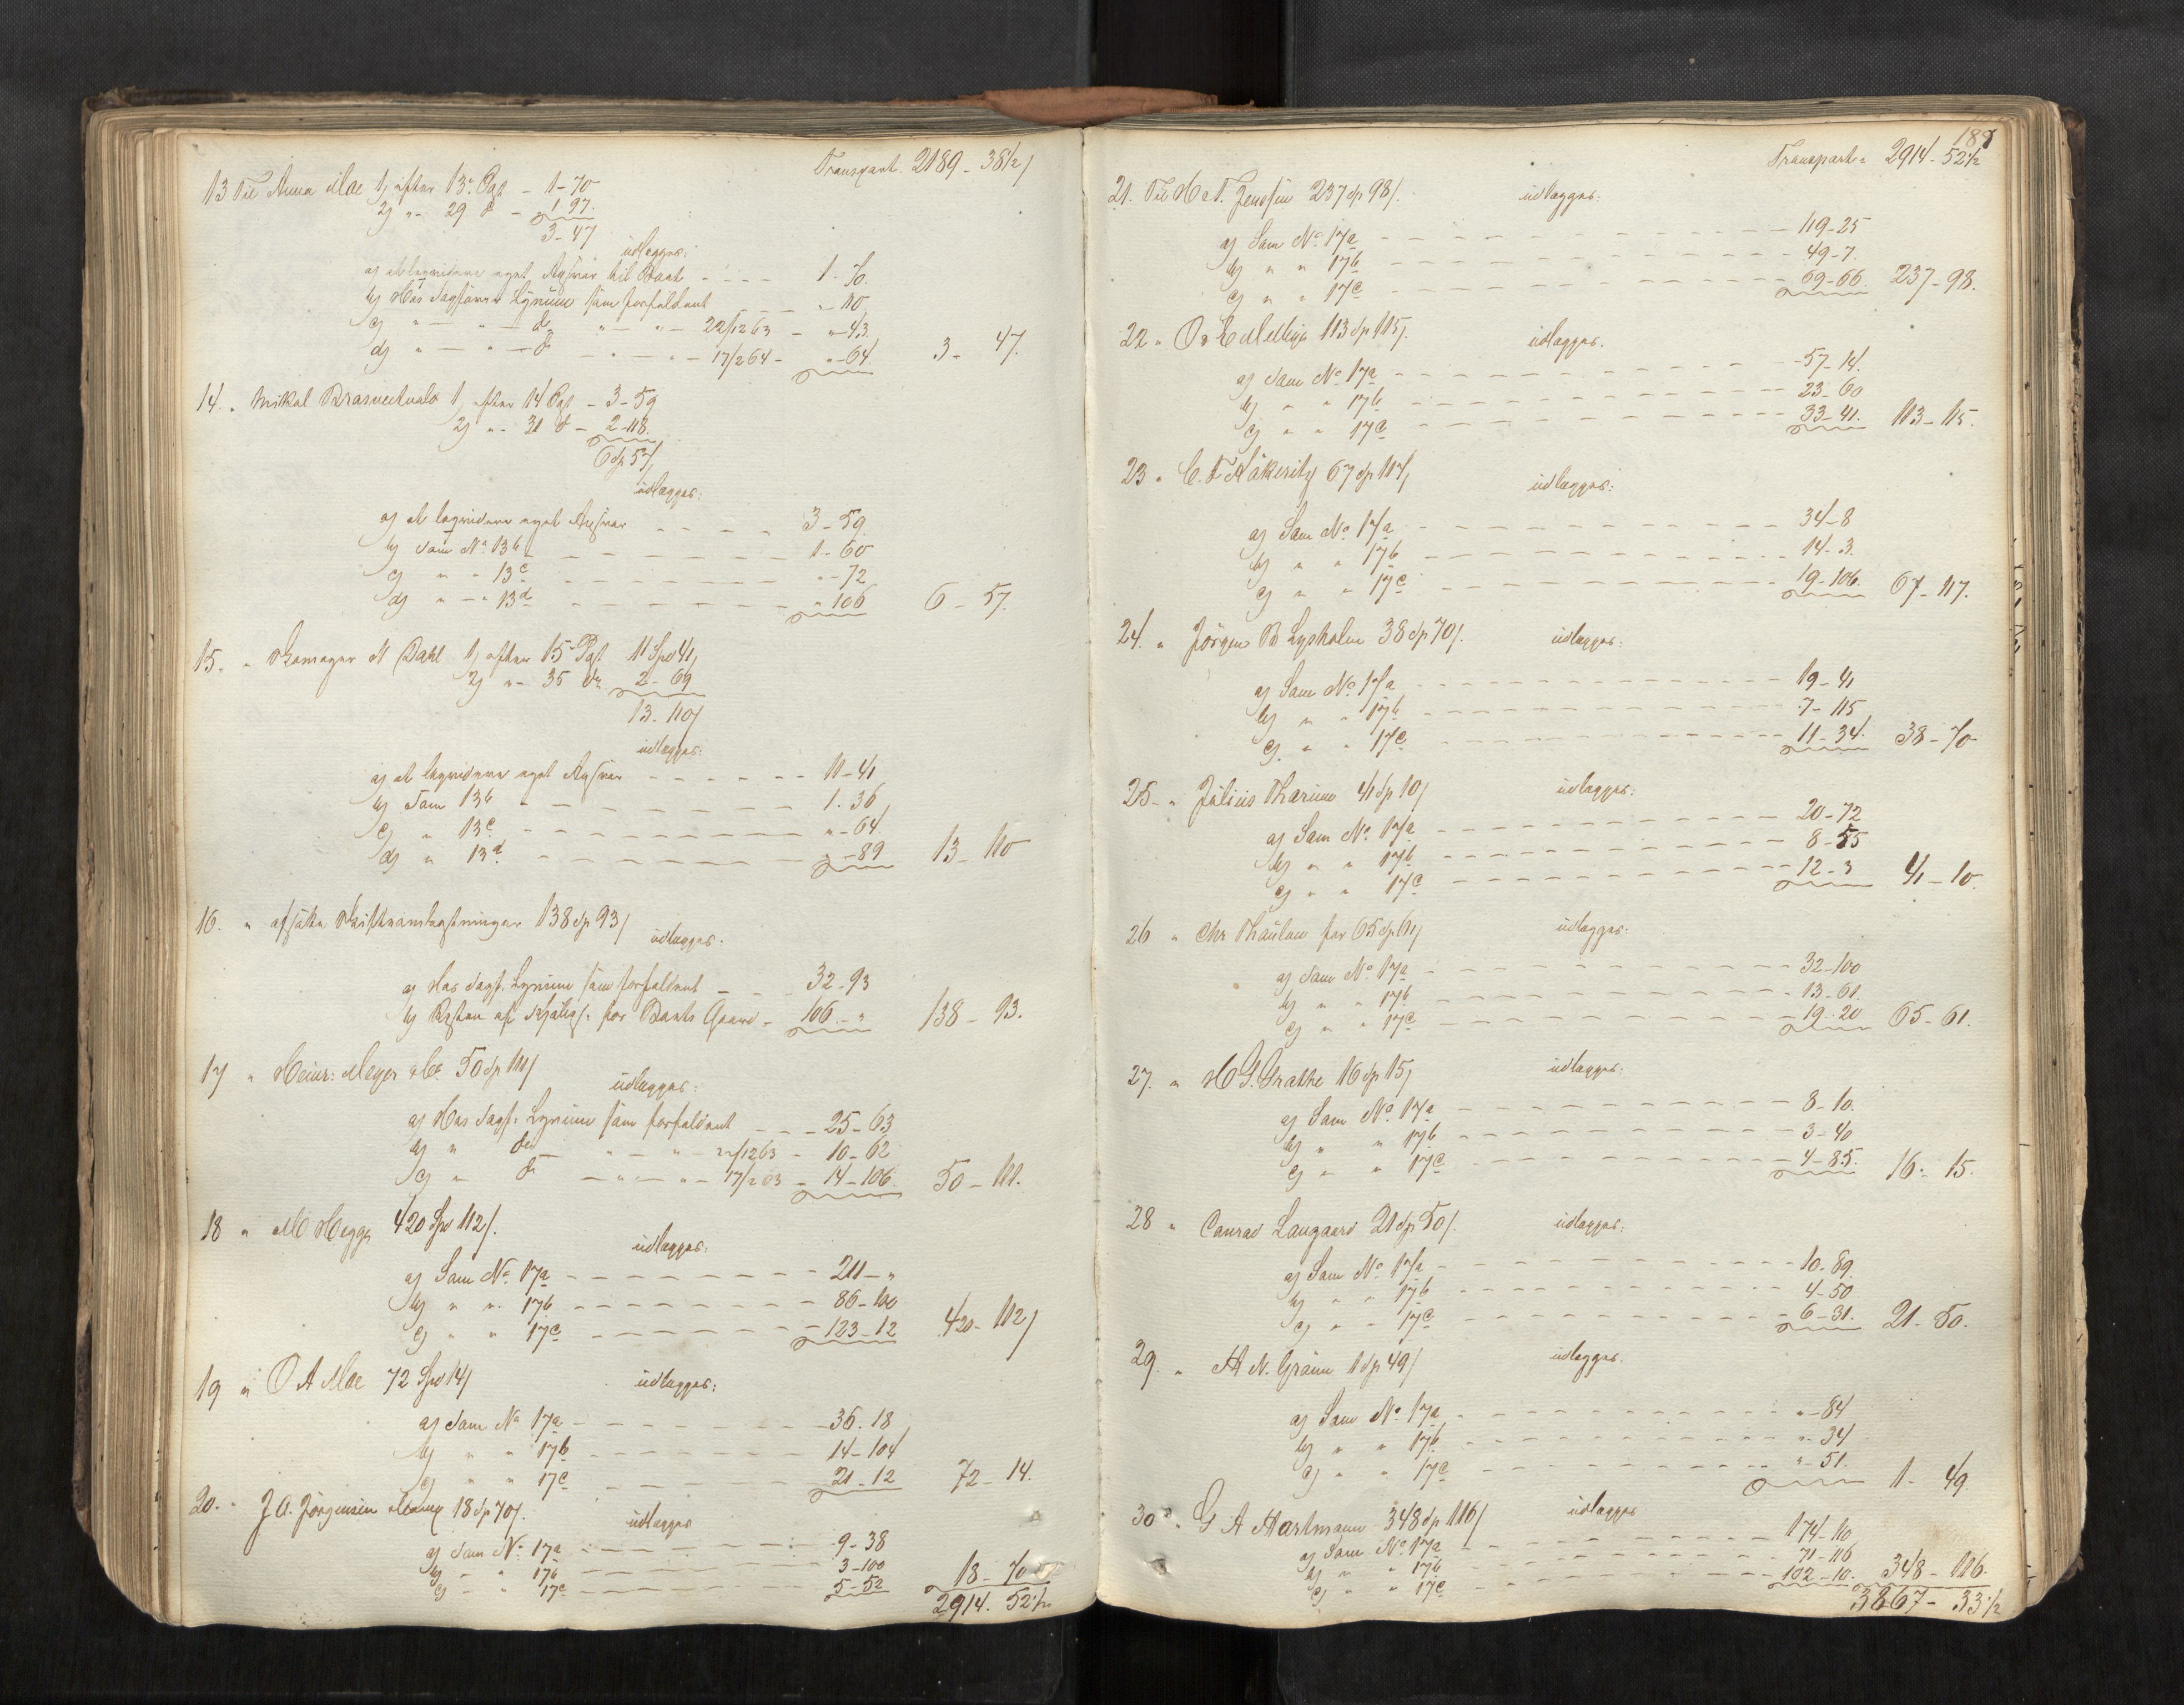 Transport. 2189 - 38 1/2 /
13 Til Anna Moe 1, efter 13. Pgt - 1-70
2) " - 29 d - 1 97.
3-47
udlægges:
a) at liqvidere eget Ansvar til Boet - - - 1-70.
b) Hos Sagfører Lynum som forfaldent " - 110
c) " - " - do " - " - 22/12 63 - " - 43.
d) " - " - do - " - " - 17/2 64 - " - 64. 3 - 47.
14. " Mikal 1, efter 14 Pgt - 3-59
2) " - 31 d - 2-118.
6 Sp 57/
udlægges:
a) at liqvidere eget Ansvar - - - - 3-59
b) Som No 13b - - - - - 1-60
c) " " 13c - - - - - " - 72
d) " - " 13d - - - - - " 106 6 - 57.
15. " Skomager N Dahl 1, efter 15de Pgt 11 Spd 41/
2) " - 35 do 2-69
13-110/
udlægges:
a) at liqvidere eget Ansvar - - - - 11-41
b) Som 13b - - - - - 1-36
c) " 13c - - - - - " - 64
d) " 13d - - - - - " - 89 13 - 110
16. " afsatte Skifteomkostninger 138 Sp 93/ udlægges.
a) Hos Sagf. Lynum som forfaldent - - - 32-93
b) Resten af for Boets Gaard - 106 - " 138 - 93.
17 " Heinr: Meyer & Co 50 Sp 111/
udlægges:
a) Hos Sagf. Lynum som forfaldent - - - 25-63
b) " do - " - " - 22/12 63 - 10-62
c) " do - " - " - 17/2 63 - 14-106 50 - 111.
18 " M Hegge 420 Spd 112/.
udlægges:
a) Som No 17a - - - - - 211 - "
b) " " 17b - - - - - 86-100
c) " " 17c - - - - - 123-12 420-112/
19 " O A Moe 72 Spd 14/ udlægges:
a) Som No 17a - - - - - 36.18
b) " " 17b - - - - - 14-104
c) " " 17c - - - - - 21-12 72 - 14.
20. " J A. Jørgensen 18 Sp 70/. udlægges
a) Som No 17a - - - - - 9-38
b) " " 17b - - - - - 3-100
c) " " 17c - - - - - 5-52 18 - 70
2914. 52 1/2
189
Transport: 2914 - 52 1/2
21. Til H & F. Jenssen 237 Sp 98/. udlægges:
a) Som No 17a - - - - - 119-25
b) " " 17b - - - - - 49-7.
c) " " 17c - - - - - 69-66 237-98.
22 " 113 Sp 115/. udlægges.
a) Som No 17a - - - - - 57-14.
b) " " 17b - - - - - 23-60
c) " " 17c - - - - - 33-41. 113-115.
23 " C. F 67 Sp 117/ udlægges:
a) Som No 17a - - - - - 34-8
b) " " 17b - - - - - 14-3.
c) " " 17c - - - - - 19-106. 67-117.
24. " Jörgen B Lysholm 38 Sp 70/. udlægges:
a) Som No 17a - - - - - 19-41
b) " " 17b - - - - - 7-115
c) " " 17c - - - - - 11-34. 38-70
25 - " Julius Tharum 41 Sp 10/ udlægges:
a) Som No 17a - - - - - 20-72
b) " " 17b - - - - - 8-55
c) " " 17c - - - - - 12-3 41-10.
26 " Chr Thaulow for 65 Sp 61/ udlægges:
a) Som No 17a - - - - - 32-100
b) " " 17b - - - - - 13-61.
c) " " 17c - - - - - 19-20 65-61.
27. " H G. Grathe 16 Sp 15/ udlægges:
a) Som No 17a - - - - - 8-10.
b) " " 17b - - - - - 3-40
c) " " 17c - - - - - 4-85. 16-15.
28 " Conrad Langaard 21 Sp 50/. udlægges:
a) Som No 17a - - - - - 10-89.
b) " " 17b - - - - - 4-50
c) " " 17c - - - - - 6-31. 21-50.
29. " H N. Gram 1 Sp 49/ udlægges.
a) Som No 17a - - - - - " - 84
b) " " 17b - - - - - " 34
c) " " 17c - - - - - " - 51. 1 - 49.
30 " G A Hartmann 348 Sp 116/ udlægges
a) Som No 17a - - - - - 174-110
b) " " 17b - - - - - 71-116
c) " " 17c - - - - - 102-10. 348-116.
3867 - 33 1/2